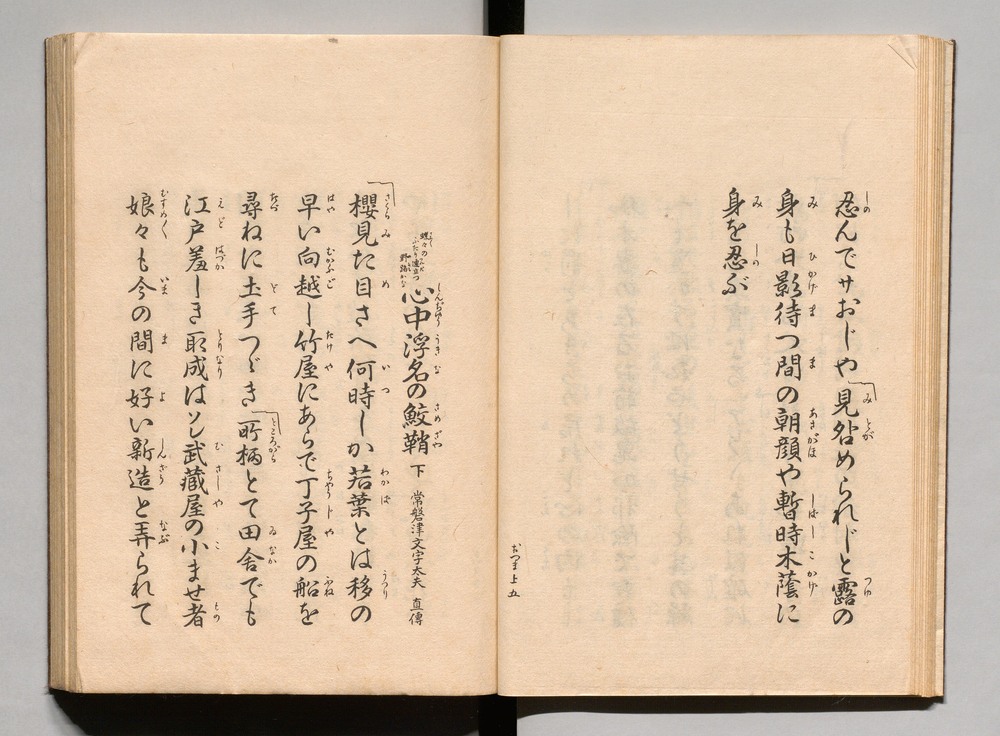 忍んでサおじや見咎められじと露の
身も日影待つ間の朝顔や暫時木蔭に
身を忍ぶ
おつま上 五
蝶々の
ふたり連立つ
野路かな
心中浮名の鮫鞘 下 常磐津文字太夫 直傳
櫻見た目さへ何時しか若葉とは移の
早い向越し竹屋にあらで丁子屋の船を
尋ねに土手つゞき所柄とて田舎でも
江戸羞しき取成はソレ武藏屋の小ませ者
娘々も今の間に好い新造と弄られて